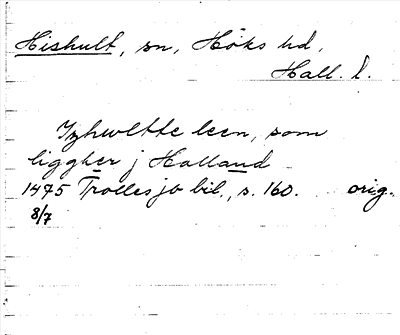 Hishult, sn, Höks hd,
Hall. l.
Izhwltte leen, som
liggher j Halland
1475 Trollesjö bil., s. 160. orig.
8/7